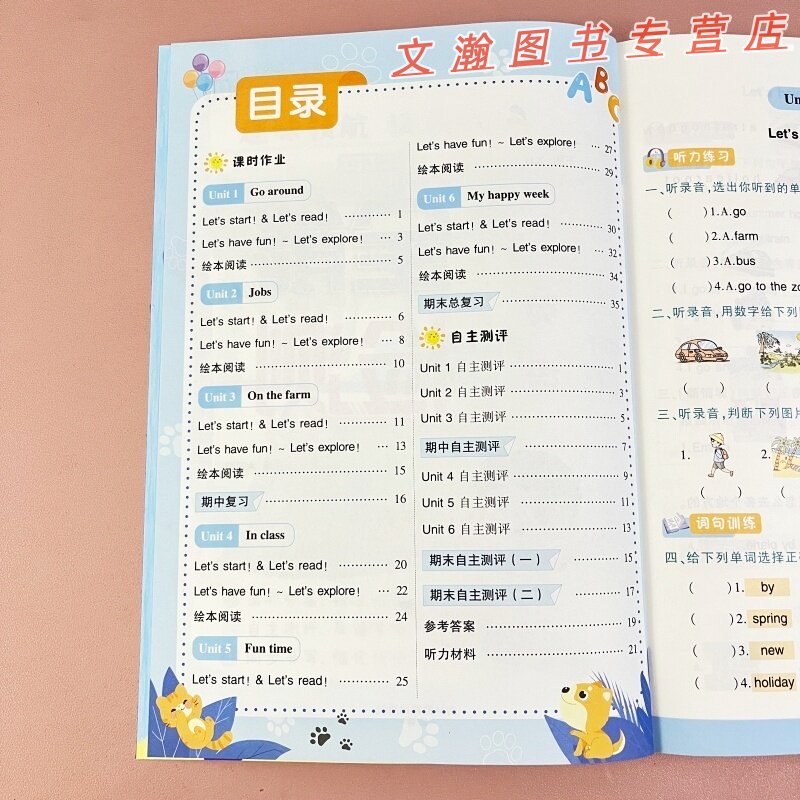 文瀚图书专营店
目录
ABC
课时作业
Unit 1 Go around
Let's start! & Let's read! ………… 1
Let's have fun! ~ Let's explore! … 3
绘本阅读 ………… 5
Unit 2 Jobs
Let's start! & Let's read! ………… 6
Let's have fun! ~ Let's explore! … 8
绘本阅读 ………… 10
Unit 3 On the farm
Let's start! & Let's read! ………… 11
Let's have fun! ~ Let's explore! … 13
绘本阅读 ………… 15
期中复习 ………… 16
Unit 4 In class
Let's start! & Let's read! ………… 20
Let's have fun! ~ Let's explore! … 22
绘本阅读 ………… 24
Unit 5 Fun time
Let's start! & Let's read! ………… 25
Let's have fun! ~ Let's explore! … 27
绘本阅读 ………… 29
Unit 6 My happy week
Let's start! & Let's read! ………… 30
Let's have fun! ~ Let's explore! … 32
绘本阅读 ………… 34
期末总复习 ………… 35
自主测评
Unit 1 自主测评 ………… 1
Unit 2 自主测评 ………… 3
Unit 3 自主测评 ………… 5
期中自主测评 ………… 7
Unit 4 自主测评 ………… 9
Unit 5 自主测评 ………… 11
Unit 6 自主测评 ………… 13
期末自主测评(一) ………… 15
期末自主测评(二) ………… 17
参考答案 ………… 19
听力材料 ………… 21
Un
Let's
听力练习
一、听录音,选出你听到的单
( )1.A.go
( )2.A.farm
( )3.A.bus
( )4.A.go to the zo
二、听录音,用数字给下列图
( ) (
三、听录音,判断下列图片
1. 2.
( ) (
词句训练
四、给下列单词选择正确
( )1. by
( )2. spring
( )3. new
( )4. holiday